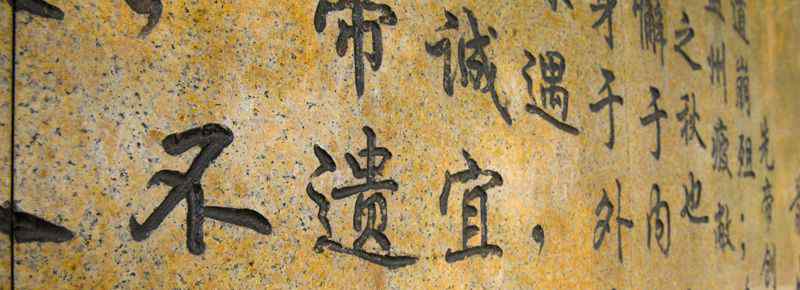 先帝創
道崩殂;
州疲敝
之秋也
懈于内
身于外
遇,
誠宜
帝遺
不